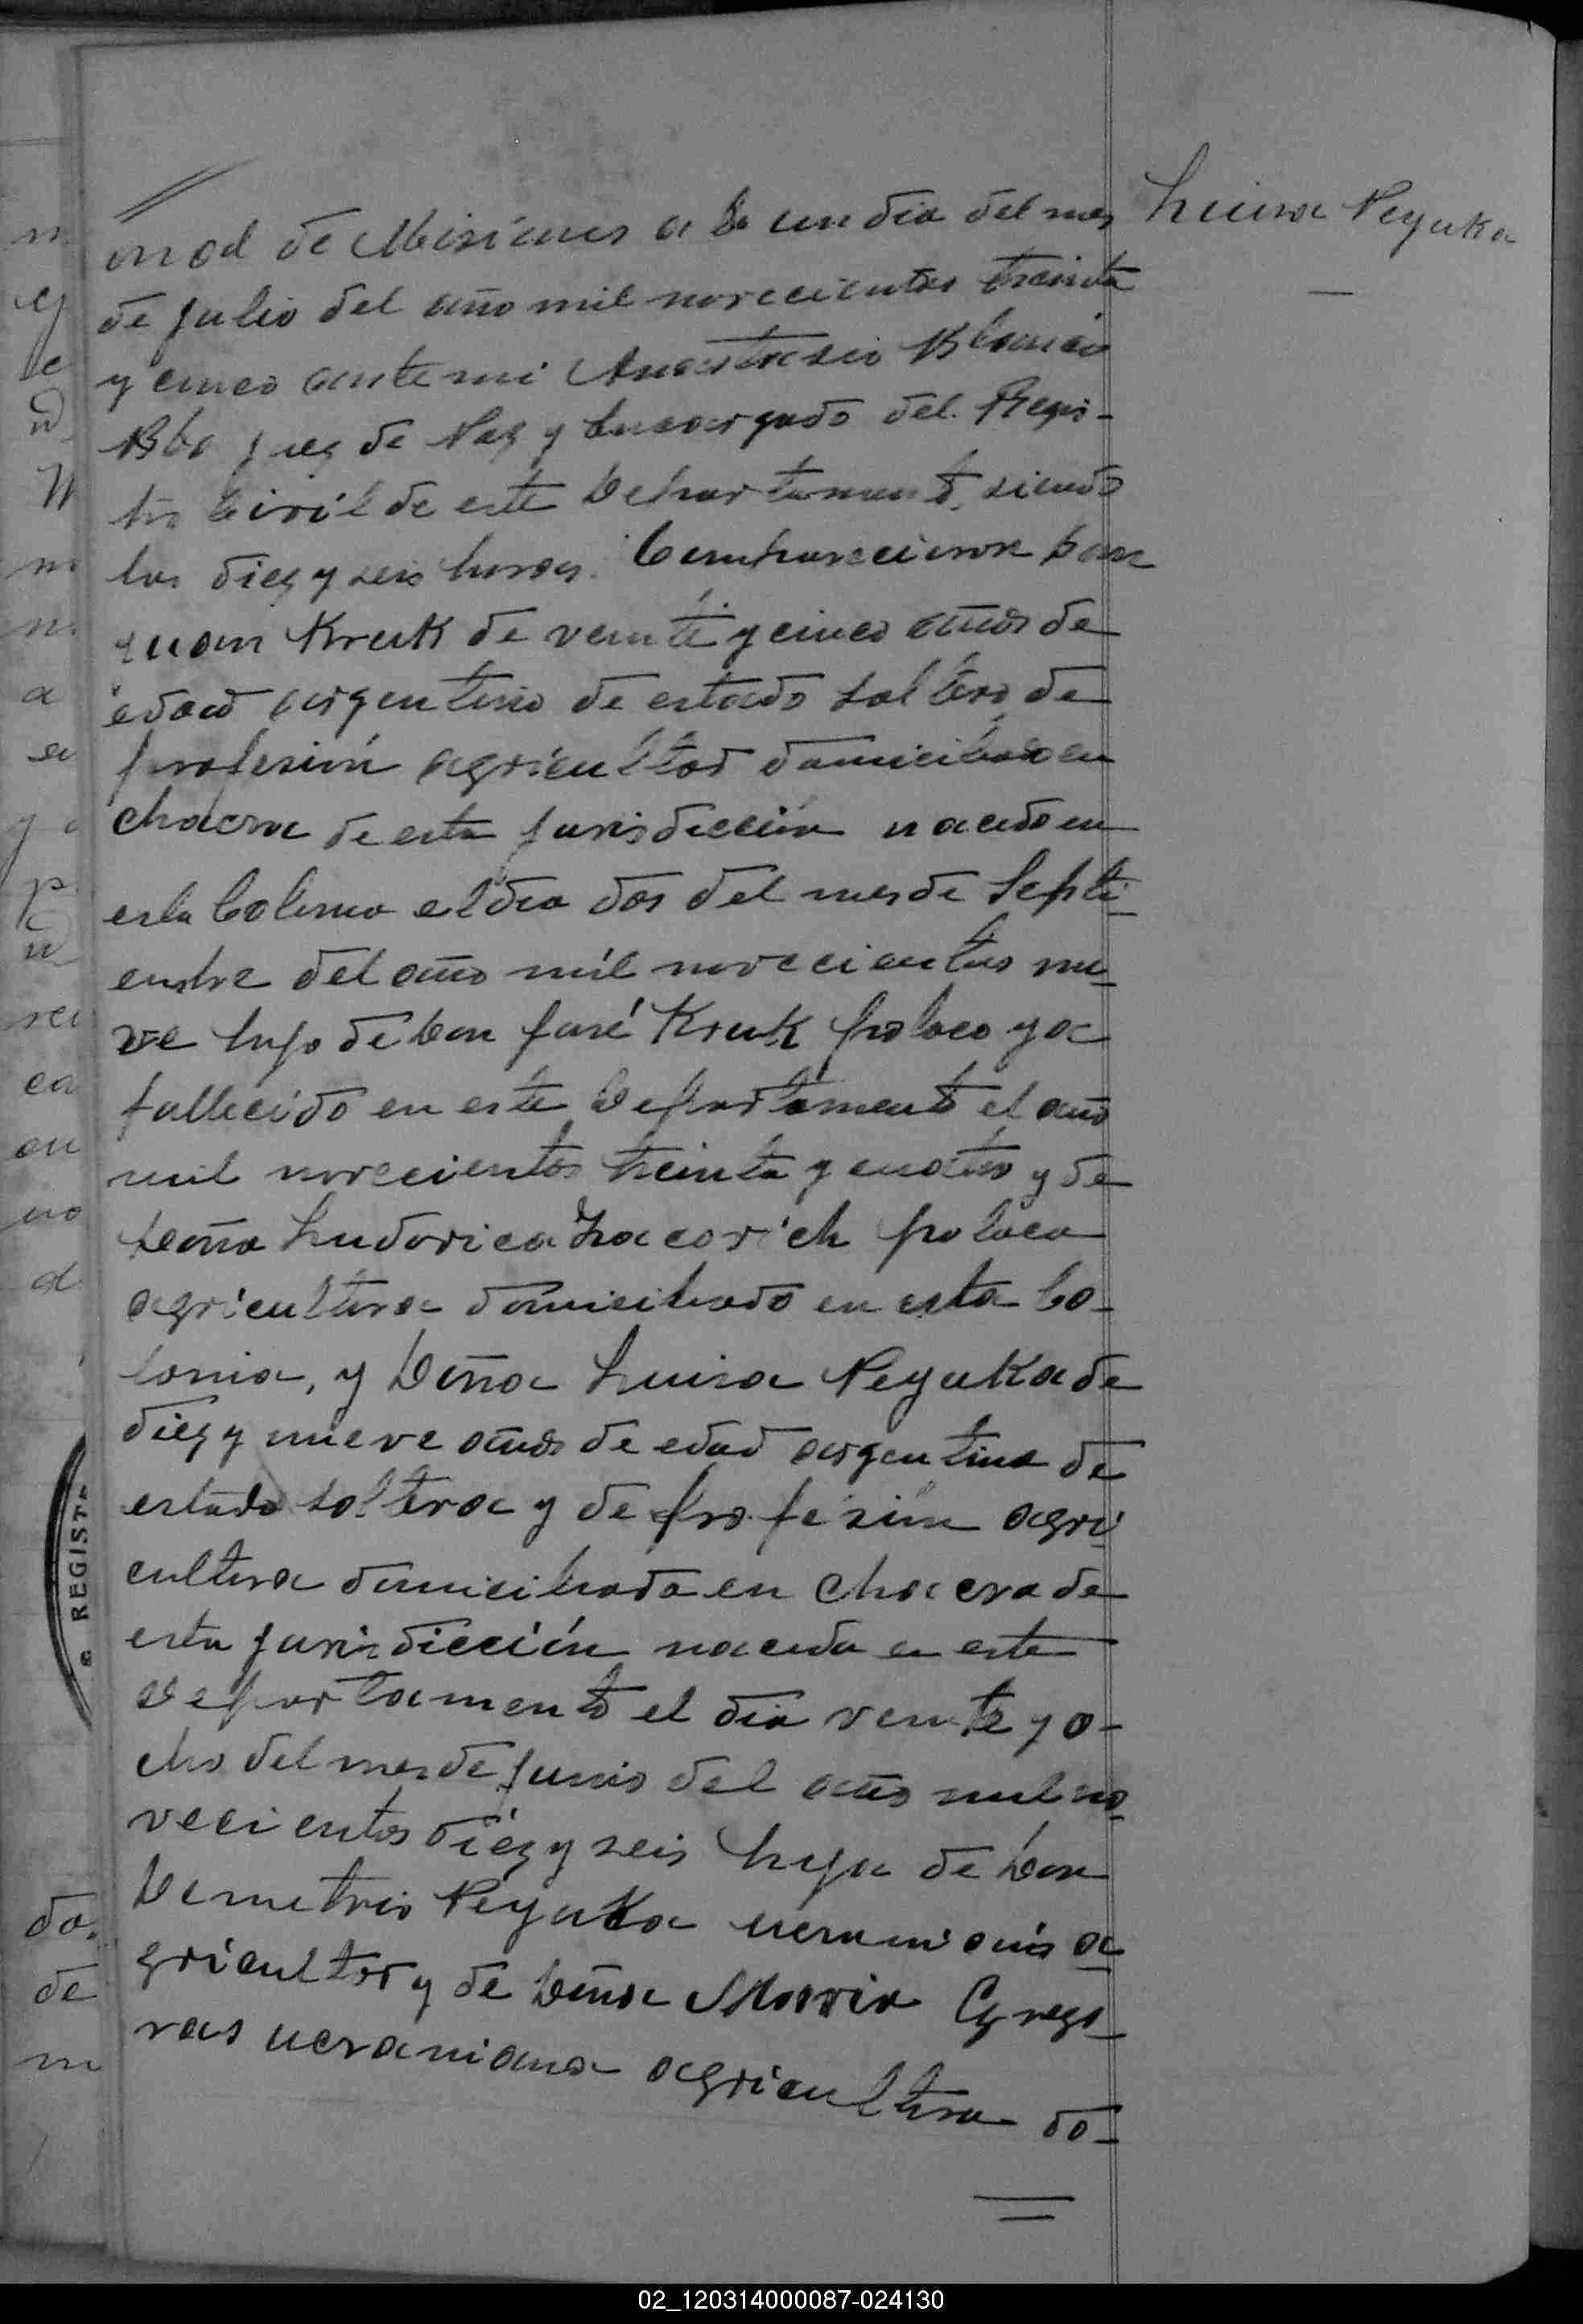 Luisa Peyuka
onal de Misiones a un dia del mes
de julio del año mil novecientos treinta
y cinco ante mi Anastasio Blanco
juez de Paz y Encargado del Regis-
tro Civil de este Departamento, siendo
las diez y seis horas. Comparecieron Don
Juan Kruk de veinte y cinco años de
edad argentino de estado soltero de
profesión agricultor domiciliado en
chacra de esta jurisdicción nacido en
esta Colonia el dia dos del mes de Septi-
embre del año mil novecientos nue-
ve hijo de Don José Kruk polaco ya
fallecido en este Departamento el año
mil novecientos treinta y cuatro y de
Doña Ludovica polaca
agricultora domiciliado en esta Co-
lonia, y Doña Luisa Peyuka de
diez y nueve años de edad argentina de
estado soltera y de profesión agri
cultora domiciliada en chacra de
esta jurisdicción nacida en este
Departamento el dia veinte y o-
cho del mes de junio del año mil no-
vecientos diez y seis hija de Don
Demetrio Peyuka ucraniano a-
gricultor y de Doña Maria Grego-
ras ucraniana agricultora do-
REGIST
02_120314000087-024130